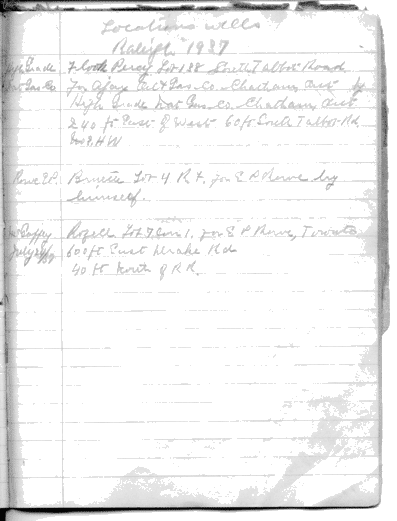 Locations wells
Raleigh 1937
High Grade Flook Percy Lot 188 South Talbot Road
Nat Gas Co. For Ajax Oil & Gas Co. Chatham, Ont by
High Grade Nat Gas Co. Chatham, Ont
240 ft East of West 60 ft South Talbot Rd
Rowe E.P. Lot 4 R 4. for E P Rowe by
himself.
Lot 7 Con 1. for E P Rowe, Toronto
July 600 ft East Drake Rd
40 ft North of R R.